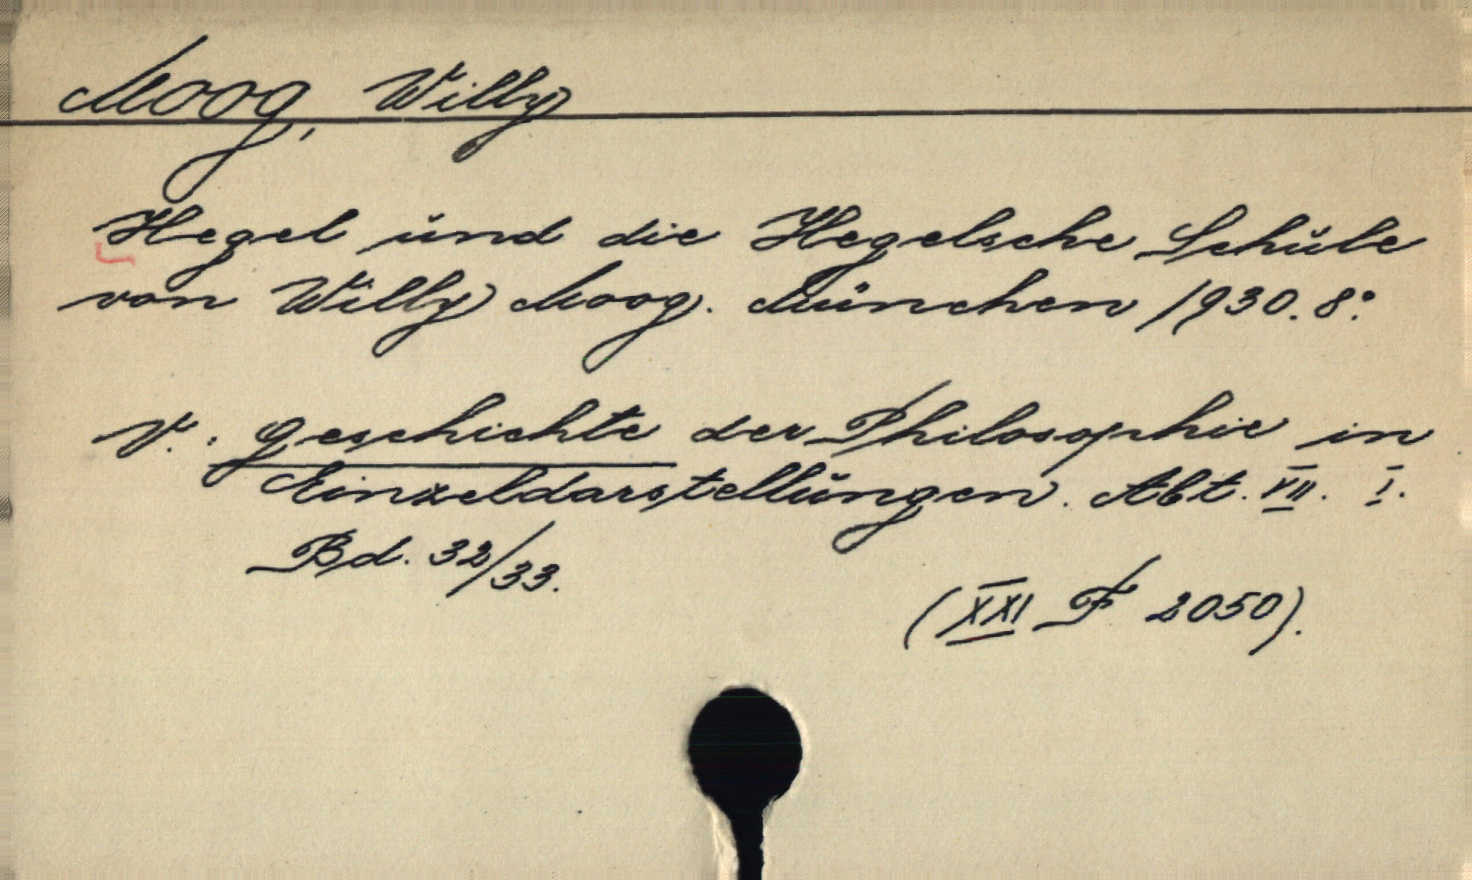 Moog, Willy
Hegel und die Hegelsche Schule
von Willy Moog. München 1930. 8°.
V.: Geschichte der Philosophie in
Einzeldarstellungen. Abt. VII. I.
Bd. 32/33.
(XXI F 2050).